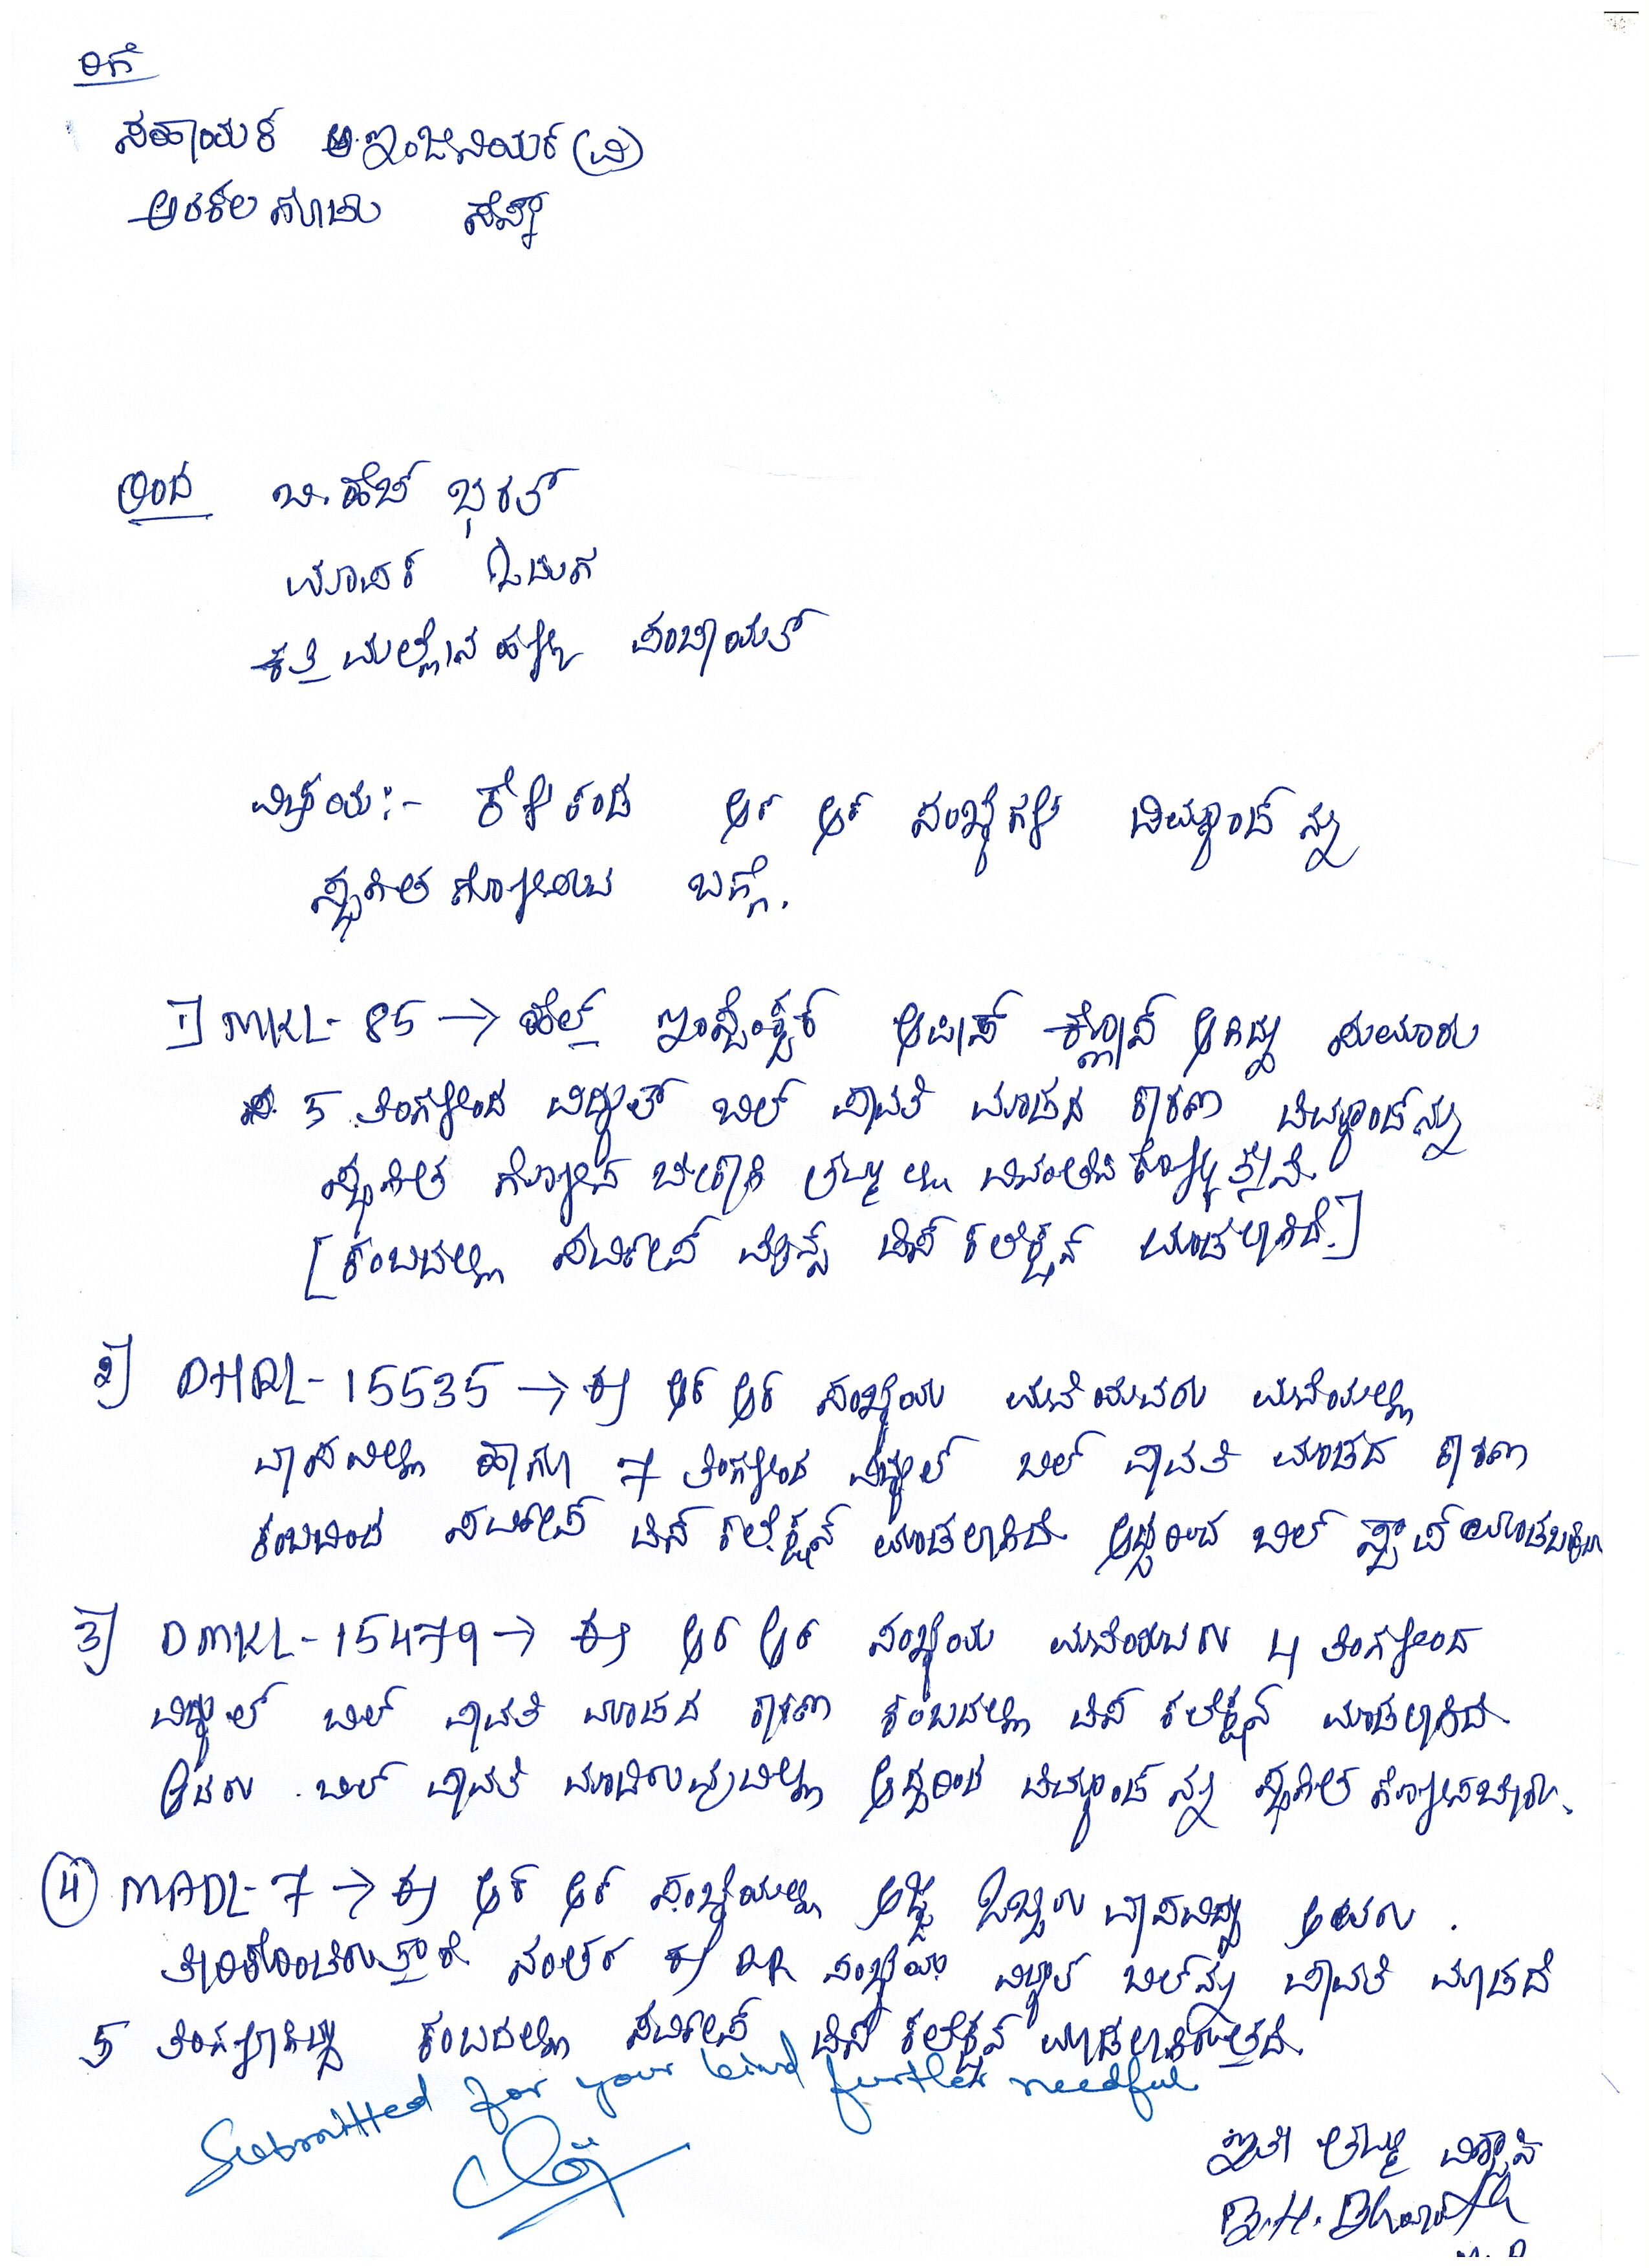 ರಿಗೆ
ಸಹಾಯಕ ಇಂಜಿನಿಯರ್ (ವಿ)
ಅರಕಲಗೂಡು ಸೆಸ್ಕ್
ರಿಂದ ಬಿ.ಹೆಚ್ ಭರತ್
ಮಾಪಕ ಓದುಗ
ಮಲ್ಲೇನಹಳ್ಳಿ ಪಂಚಾಯತ್
ವಿಷಯ:- ಕೆಳಕಂಡ ಆರ್ ಆರ್ ಸಂಖ್ಯೆಗಳ ಡಿಮ್ಯಾಂಡ್ ನ್ನು
ಸ್ಥಗಿತಗೊಳಿಸುವ ಬಗ್ಗೆ.
1] MKL-85 → ಹೆಲ್ತ್ ಇಂಸ್ಪೆಂಕ್ಟರ್ ಆಪೀಸ್ ಕ್ಲೋಸ್ ಆಗಿದ್ದು ಸುಮಾರು
5 ತಿಂಗಳಿಂದ ವಿದ್ಯುತ್ ಬಿಲ್ ಪಾವತಿ ಮಾಡದ ಕಾರಣ ಡಿಮ್ಯಾಂಡ್‌ನ್ನು
ಸ್ಥಗಿತ ಗೊಳಿಸ ಬೇಕಾಗಿ ತಮ್ಮಲ್ಲಿ
[ಕಂಬದಲ್ಲಿ ಸರ್ವೀಸ್ ಡಿಸ್ ಕನೆಕ್ಷನ್ ಮಾಡಲಾಗಿದೆ.]
2] DHRL-15535 → ಈ ಆರ್ ಆರ್ ಸಂಖ್ಯೆಯ ಮನೆಯವರು ಮನೆಯಲ್ಲಿ
ವಾಸವಿಲ್ಲ ಹಾಗೂ 7 ತಿಂಗಳಿಂದ ವಿದ್ಯುತ್ ಬಿಲ್ ಪಾವತಿ ಮಾಡದ ಕಾರಣ
ಕಂಬದಿಂದ ಸರ್ವೀಸ್ ಡಿಸ್ ಕನೆಕ್ಷನ್ ಮಾಡಲಾಗಿದೆ ಆದ್ದರಿಂದ ಬಿಲ್ ಸ್ಟಾಪ್ ಮಾಡಬೇಕು
3] DMKL-15479 → ಈ ಆರ್ ಆರ್ ಸಂಖ್ಯೆಯ ಮನೆಯವರು 4 ತಿಂಗಳಿಂದ
ವಿದ್ಯುತ್ ಬಿಲ್ ಪಾವತಿ ಮಾಡದ ಕಾರಣ ಕಂಬದಲ್ಲಿ ಡಿಸ್ ಕನೆಕ್ಷನ್ ಮಾಡಲಾಗಿದೆ
ಆದರೂ ಬಿಲ್ ಪಾವತಿ ಮಾಡಿರುವುದಿಲ್ಲ ಆದ್ದರಿಂದ ಡಿಮ್ಯಾಂಡ್ ನ್ನು ಸ್ಥಗಿತ ಗೊಳಿಸಬೇಕು.
4) MADL-7 → ಈ ಆರ್ ಆರ್ ಸಂಖ್ಯೆಯಲ್ಲಿ ಅಜ್ಜಿ ಒಬ್ಬರು ವಾಸವಿದ್ದು ಅವರು
ತೀರಿಕೊಂಡಿರುತ್ತಾರೆ ನಂತರ ಈ RR ಸಂಖ್ಯೆಯ ವಿದ್ಯುತ್ ಬಿಲ್‌ನ್ನು ಪಾವತಿ ಮಾಡದೆ
5 ತಿಂಗಳಾಗಿದ್ದು ಕಂಬದಲ್ಲಿ ಸರ್ವೀಸ್ ಡಿಸ್ ಕನೆಕ್ಷನ್ ಮಾಡಲಾಗಿರುತ್ತದೆ.
Submitted for your kind further needful
ಇಂತಿ ತಮ್ಮ ವಿಶ್ವಾಸಿ
B.H. Bharath